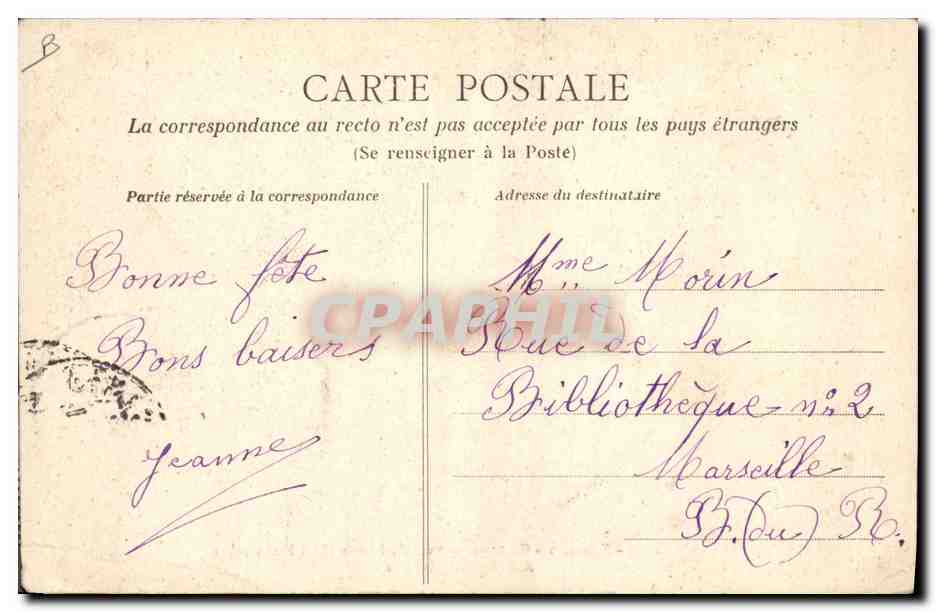 B
CARTE POSTALE
La correspondance au recto n'est pas acceptée par tous les pays étrangers
(Se renseigner à la Poste)
Partie réservée à la correspondance
Adresse du destinataire
Bonne fête
Bons baisers
Jeanne
Mme Morin
Rue de la
Bibliothèque no 2
Marseille
B. (du) R.
CPAPHIL